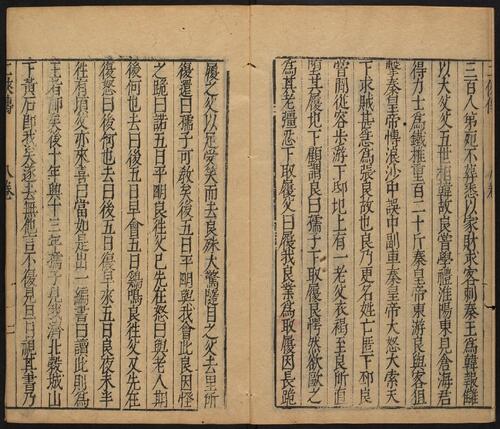 三百人弟死不葬悉以家財求客刺秦王為韓報讎
以大父父五世相韓故良嘗學禮淮陽東見倉海君
得力士為鐵椎重百二十斤秦皇帝東游良與客狙
擊秦皇帝愽浪沙中誤中副車秦皇帝大怒大索天
下求賊甚急為張良故也良乃更名姓亡匿下邳良
嘗閒從容步游下邳圯上有一老父衣褐至良所直
墮其履圯下顧謂良曰孺子下取履良愕然欲歐之
為其老彊忍下取履父曰履我良業為取履因長跪
履之父以足受笑而去良殊大驚隨目之父去里所
復還曰孺子可教矣後五日平明與我會此良因怪
之跪曰諾五日平明良往父已先在怒曰與老人期
後何也去曰後五日早會五日鷄鳴良往父又先在
復怒曰後何也去曰後五日復早來五日良夜未半
往有頃父亦來喜曰當如是出一編書曰讀此則為
王者師矣後十年興十三年孺子見我濟北穀城山
下黃石即我矣遂去無他言不復見旦日視其書乃
八卷